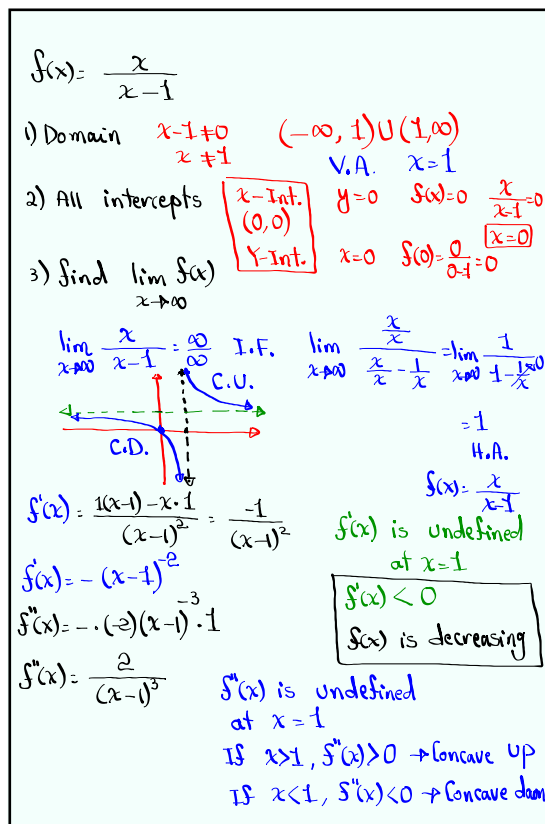 f(x) = x/(x-1)
1) Domain x-1≠0 (-∞, 1)∪(1,∞)
x≠1 V.A. x=1
2) All intercepts x-Int. y=0 f(x)=0 x/(x-1)=0
(0,0) x=0
Y-Int. x=0 f(0)=0/(0-1)=0
3) find lim x→∞ f(x)
lim x→∞ x/(x-1) = ∞/∞ I.F. lim x→∞ (x/x)/(x/x - 1/x) = lim x→∞ 1/(1 - 1/x) 0
C.U.
=1
H.A.
C.D.
f(x) = x/(x-1)
f'(x) = (1(x-1) - x·1)/(x-1)² = -1/(x-1)²
f'(x) is undefined
at x=1
f'(x) = -(x-1)⁻²
f'(x) < 0
f(x) is decreasing
f"(x) = -·(-2)(x-1)⁻³·1
f"(x) = 2/(x-1)³
f"(x) is undefined
at x=1
If x>1, f"(x)>0 → Concave up
If x<1, f"(x)<0 → Concave down